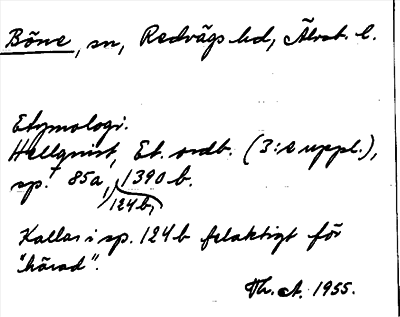 Böne, sn, Redvägs hd, Älvsb. l.
Etymologi.
Hellquist, Et. ordb. (3:e uppl.),
sp. 85a, 1390 b.
124 b,
Kallas i sp. 124 b felaktigt för
"härad".
Th. A. 1955.